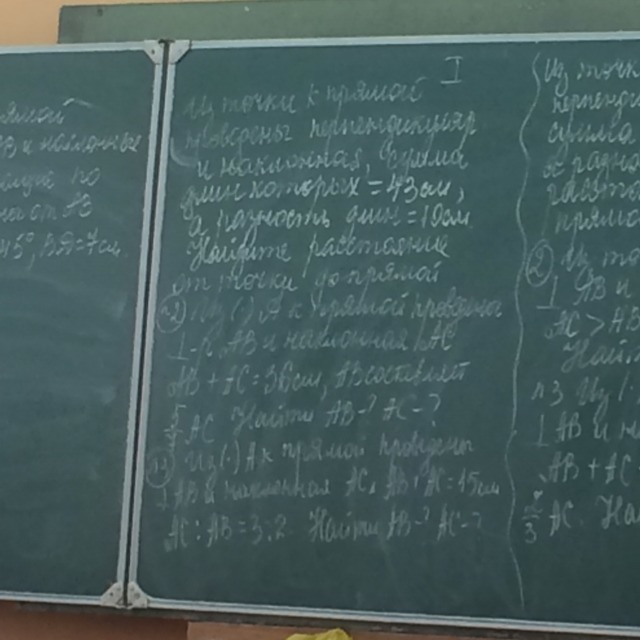 рямой
В и наклонная
но
от АВ
45°, ВД=7см
I
Из точки к прямой
проведены перпендикуляр
и наклонная, сумма
длин которых = 43см,
а разность длин = 10см
Найдите расстояние
от точки до прямой
№2 Из (·) А к прямой проведена
⊥-р АВ и наклонная АС
АВ + АС = 36см, АВ составляет
АС Найти АВ-? АС-?
№3 Из (·) А к прямой проведен
⊥ АВ и наклонная АС, АВ+АС=15см
АС : АВ = 3:2 Найти АВ-? АС-?
Из точк
перпенд
сумма
а разно
расстоя
прямо
② Из то
⊥ АВ и
АС > АВ
Най
№3 Из (
⊥ АВ и н
АВ + АС
АС На